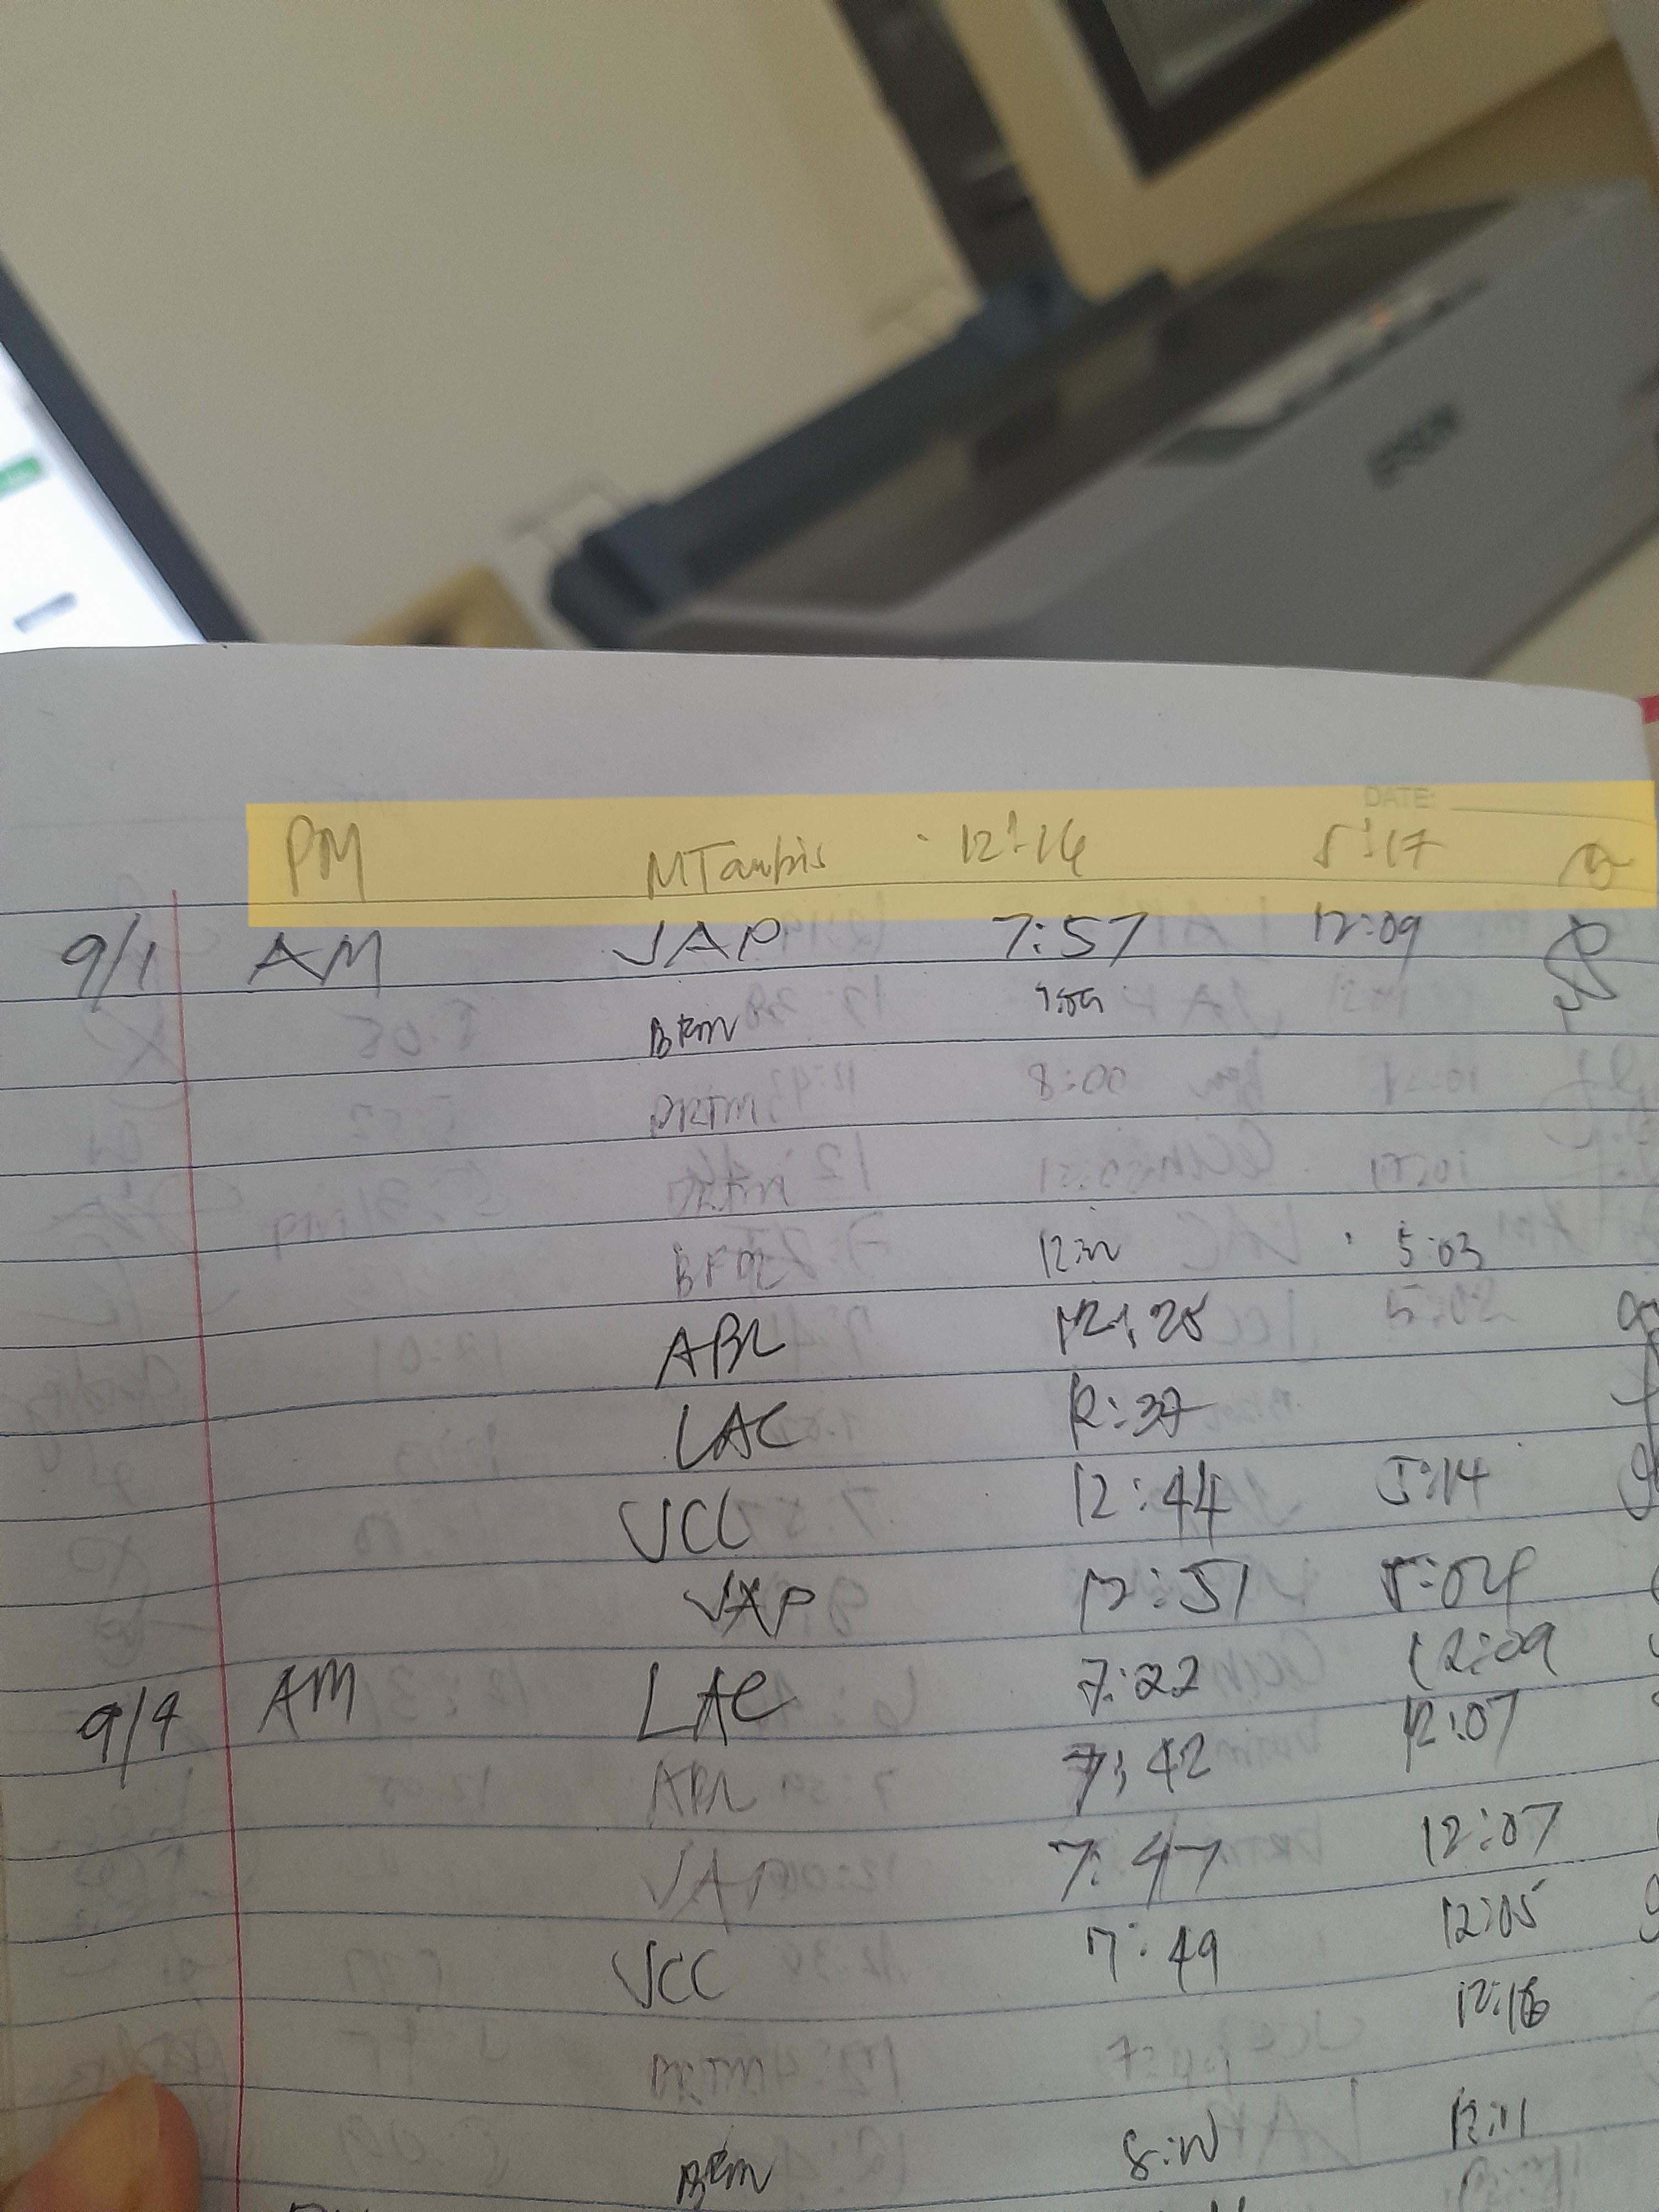 EPSON
DATE:
PM MTambis 12:16 5:17
9/1 AM JAP 7:57 12:09
BFM 7:59
DRTM 8:00
DRTM
12:20 5:03
ABL 12:28 5:02
LAC 12:37
VCC 12:44 5:14
JAP 12:51 5:04
9/4 AM LAC 7:22 12:09
ABL 7:42 12:07
JAP 7:47 12:07
VCC 7:49 12:05
DRTM 12:16
BFM 12:11